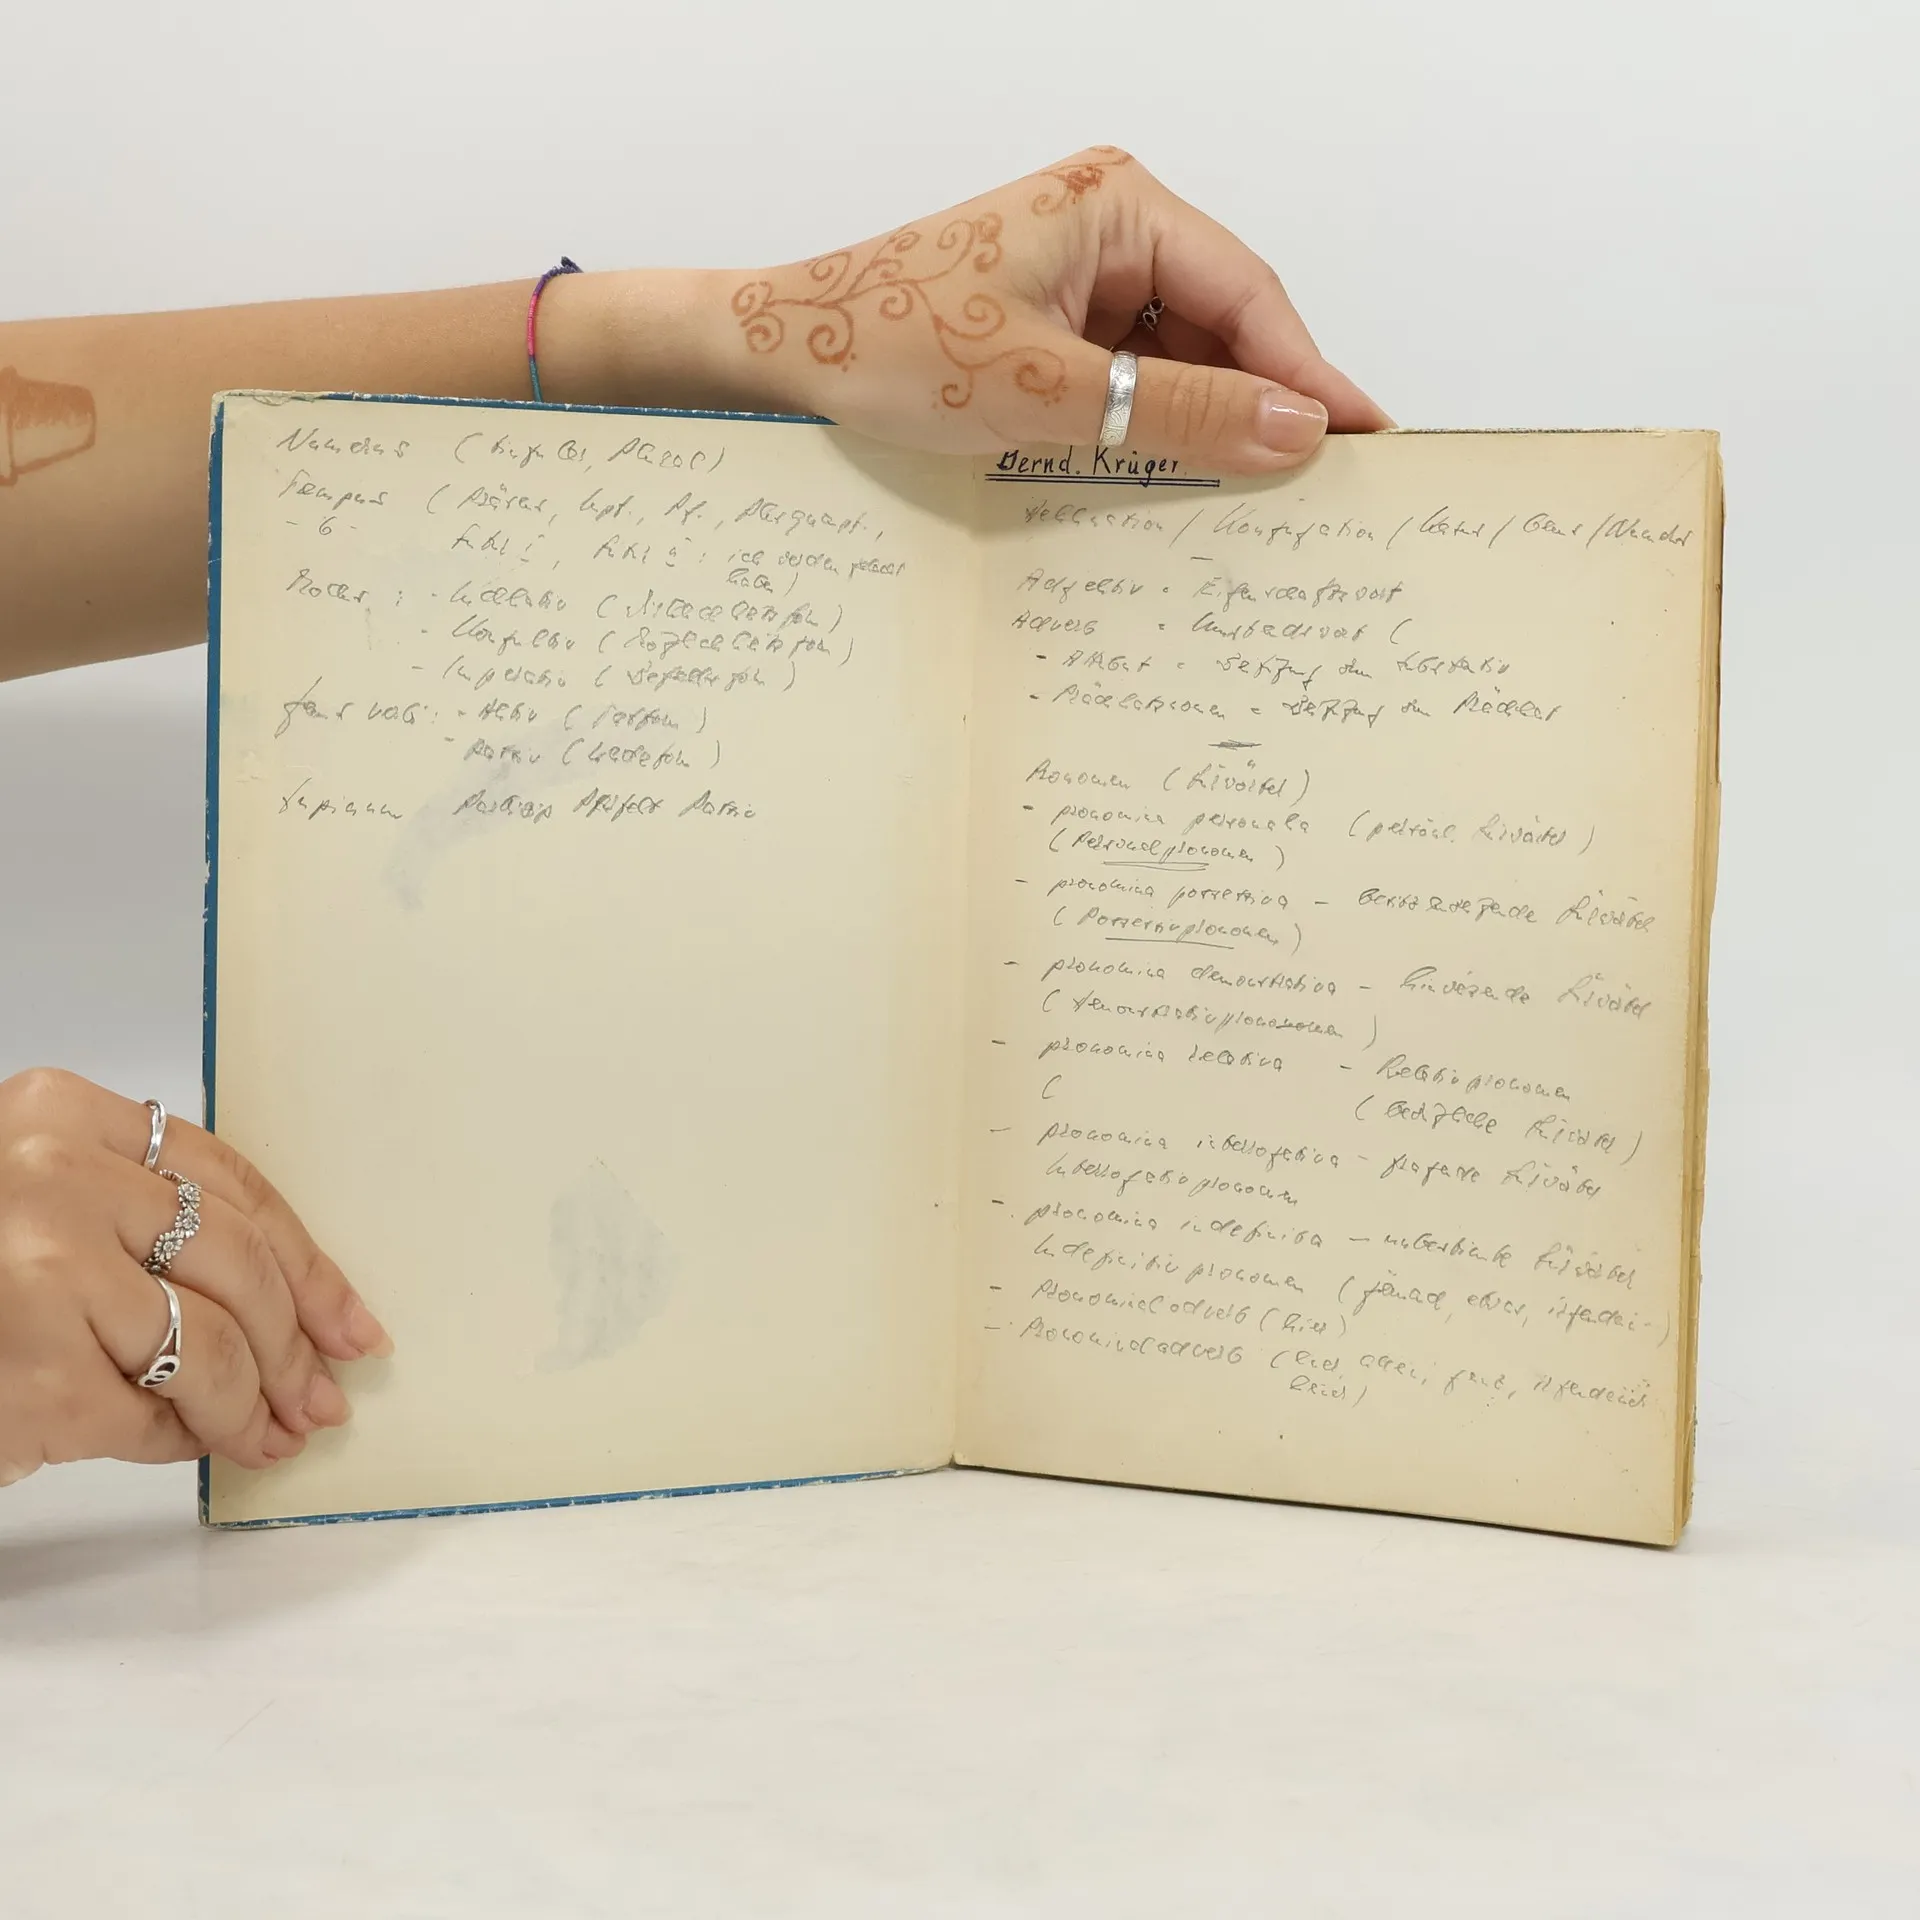 Numerus (Singular, Plural)
Tempus (Präsens, Impf., Pf., Plusquampf.,
- 6 - Futur I, Futur II: ich werde
haben)
Modus: - Indikativ (Wirklichkeitsform)
- Konjunktiv (Möglichkeitsform)
- Imperativ (Befehlsform)
Genus verbi: - Aktiv (Tatform)
- Passiv (Leideform)
Supinum Partizip Perfekt Passiv
Bernd. Krüger.
Deklination / Konjugation / Kasus / Genus / Numerus
Adjektiv = Eigenschaftswort
Adverb = Umstandswort (
- Attribut = Beifügung zum Substantiv
- Prädikatsnomen = Beifügung zum Prädikat
Pronomen (Fürwörter)
- pronomina personalia (persönl. Fürwörter)
(Personalpronomen)
- pronomina possessiva - besitzanzeigende Fürwörter
(Possessivpronomen)
- pronomina demonstrativa - hinweisende Fürwörter
(Demonstrativpronomen)
- pronomina relativa - Relativpronomen
( (bezügliche Fürwörter)
- pronomina interrogativa - fragende Fürwörter
Interrogativpronomen
- pronomina indefinita - unbestimmte Fürwörter
Indefinitivpronomen (jemand, etwas, irgendein-)
- Pronominaladverb (hier)
- Pronominaladverb